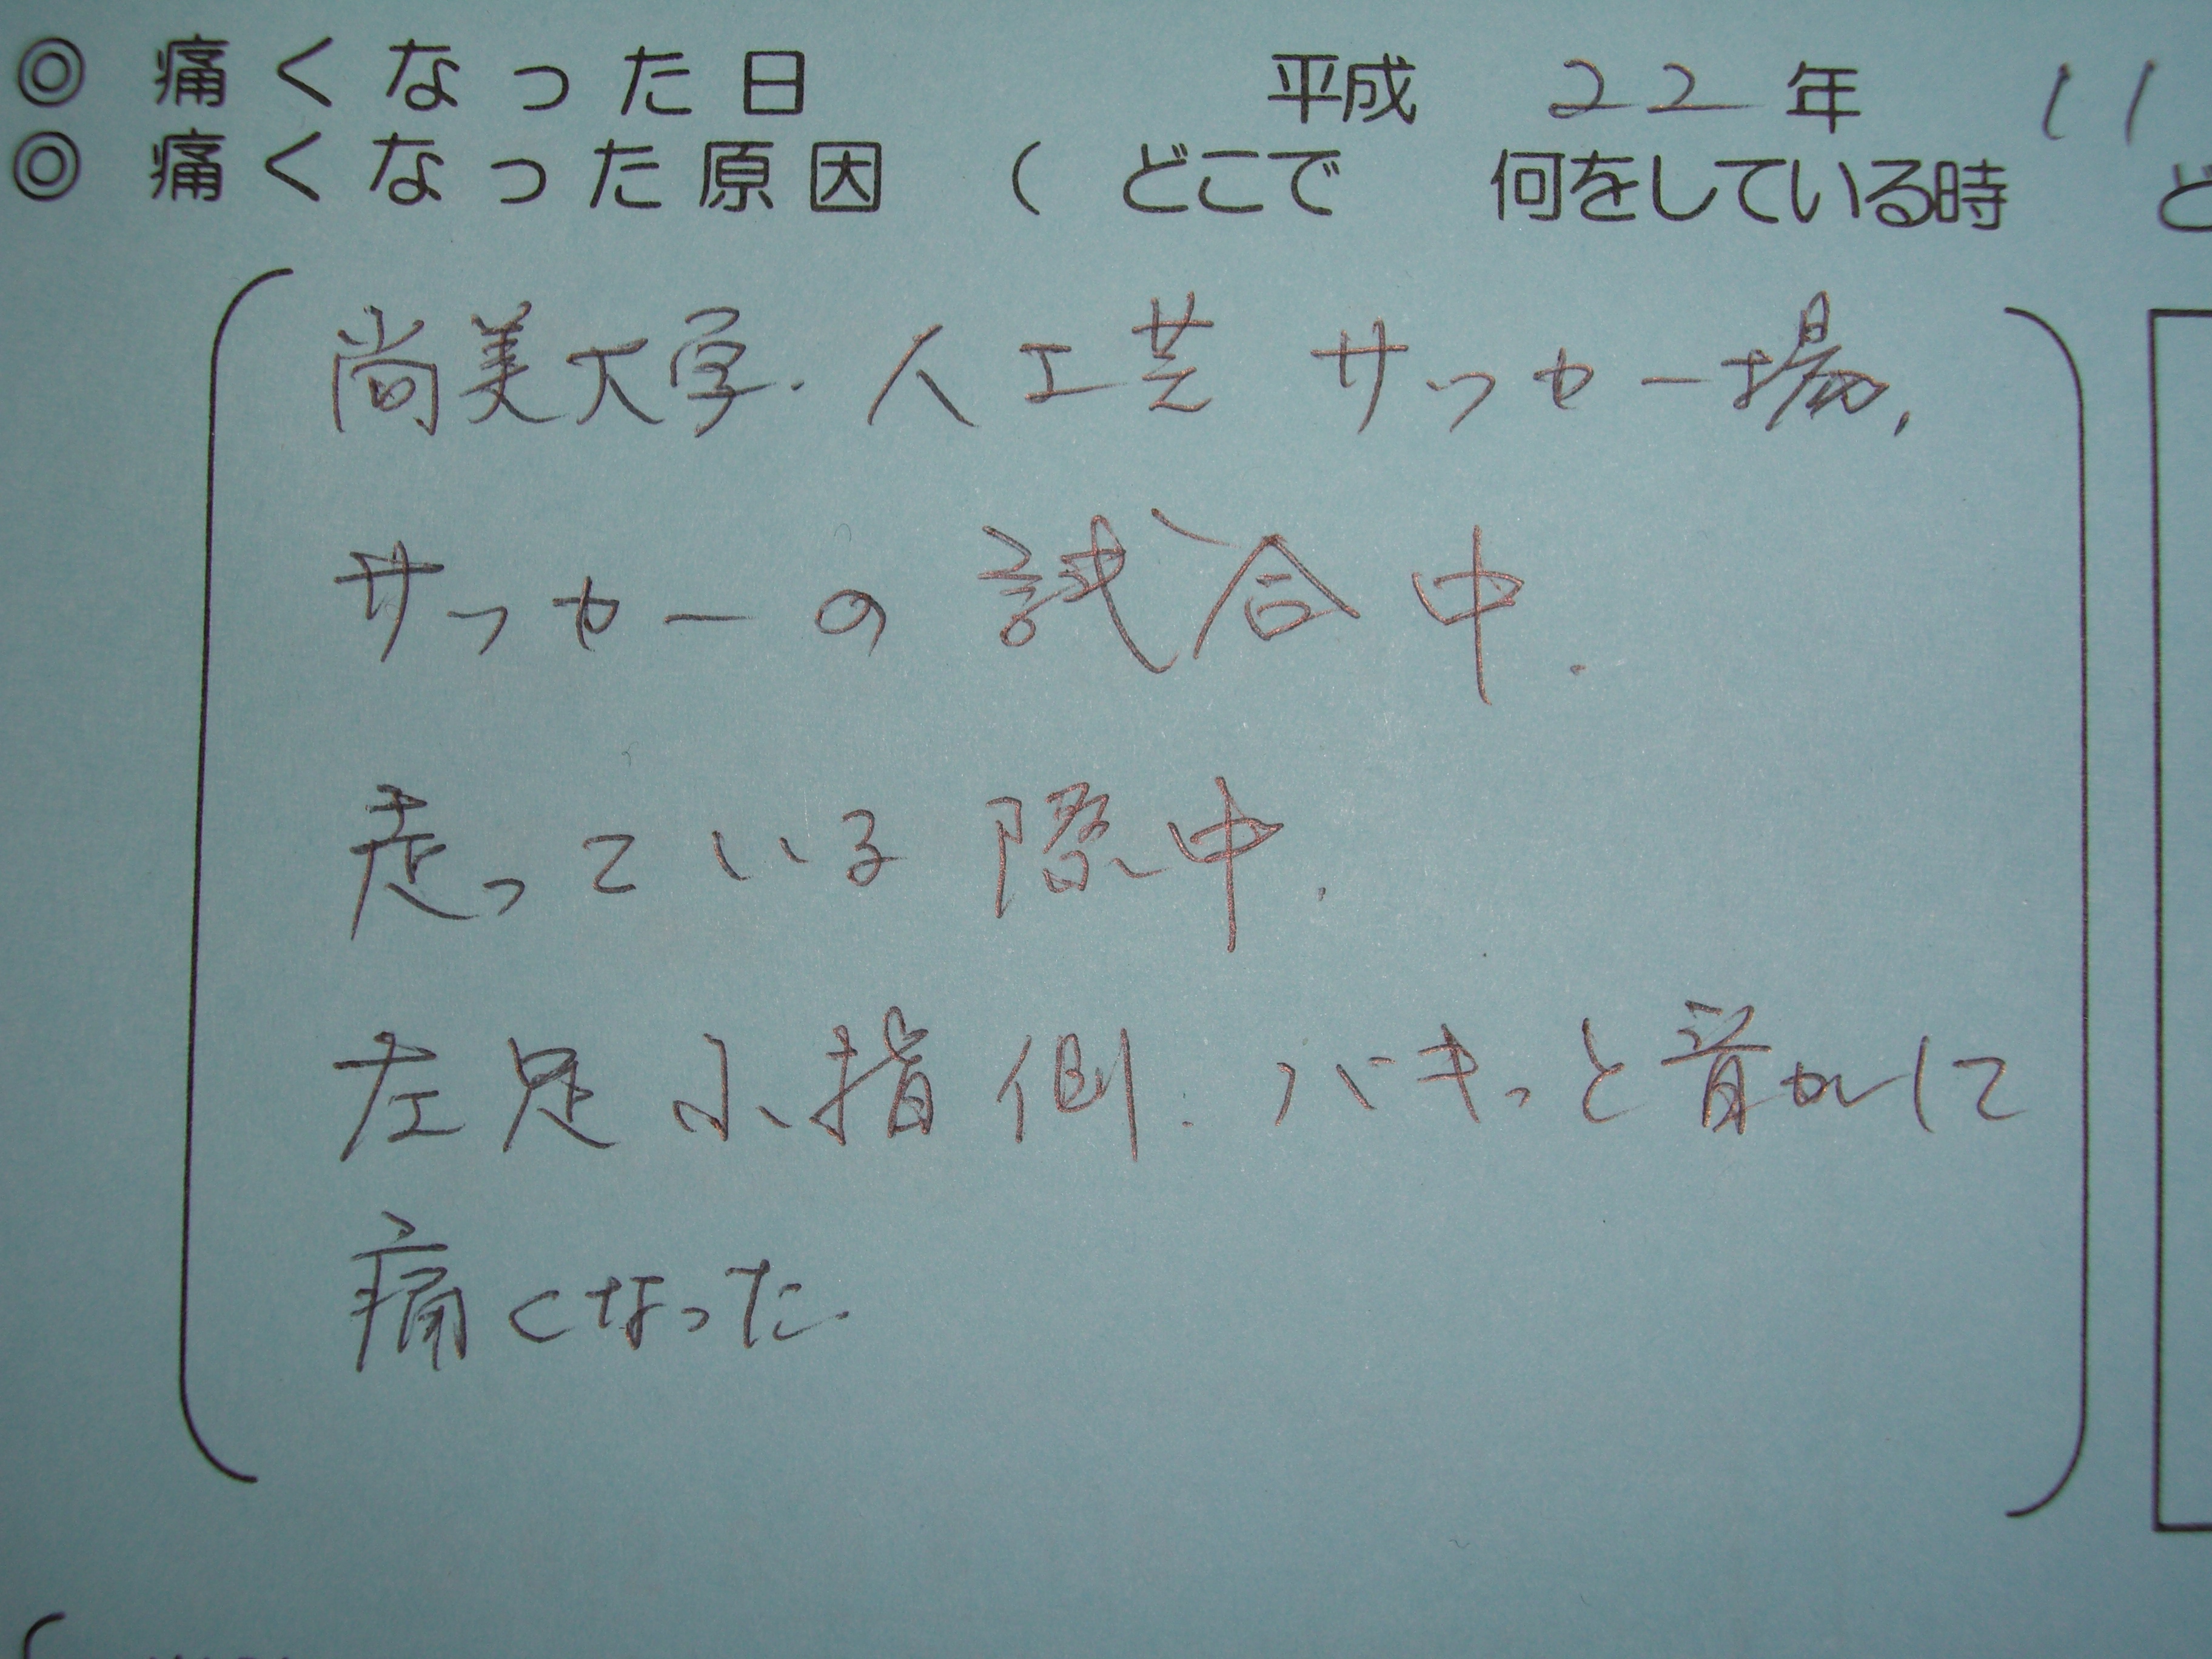 ◎ 痛くなった日 平成 22 年 11
◎ 痛くなった原因 ( どこで 何をしている時
尚美大学. 人工芝 サッカー場.
サッカーの試合中.
走っている際中.
左足小指側. バキっと音がして
痛くなった.